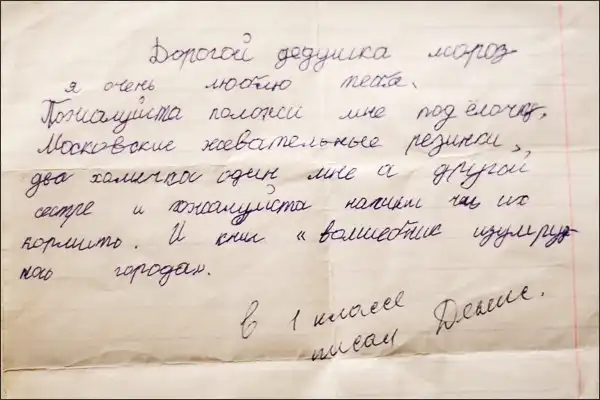 Дорогой дедушка мороз
я очень люблю тебя.
Пожалуйста положи мне под ёлочку,
Московские жевательные резинки,
два хомичка один мне а другой
сестре и пожалуйста напиши чем их
кормить. И книг «волшебник изумруд
ного города».
в 1 классе
писал Денис.